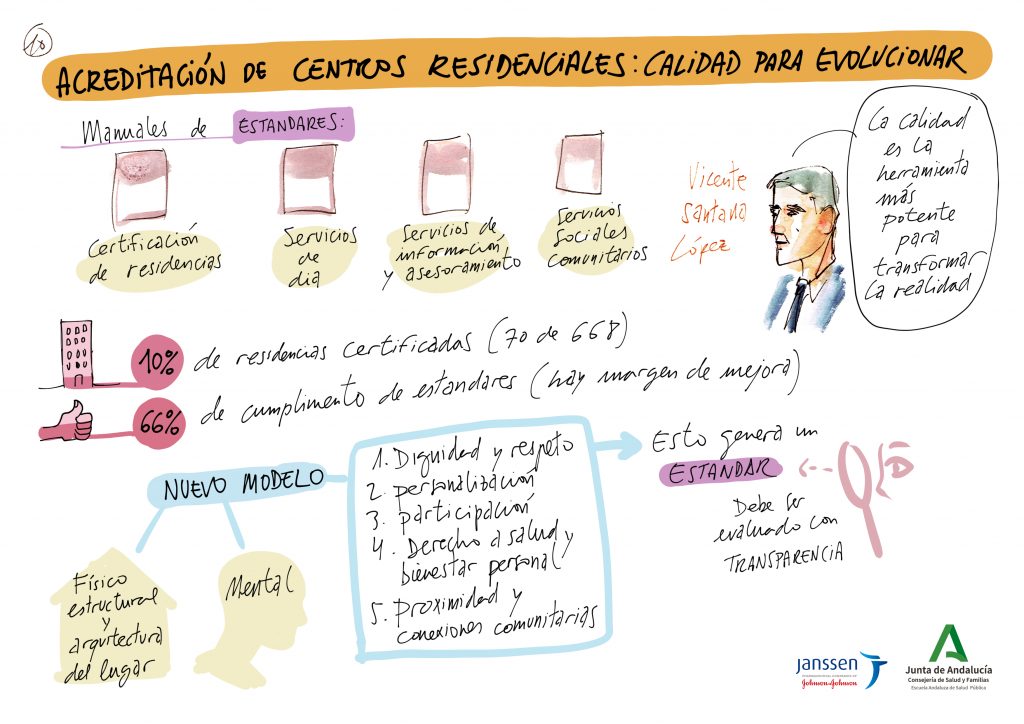 10
ACREDITACIÓN DE CENTROS RESIDENCIALES: CALIDAD PARA EVOLUCIONAR
Manuales de ESTANDARES:
Certificación
de residencias
Servicios
de
dia
Servicios de
información
y asesoramiento
Servicios
Sociales
comunitarios
Vicente
Santana
López
La calidad
es la
herramienta
más
potente
para
transformar
la realidad
10% de residencias certificadas (70 de 668)
66% de cumplimento de estandares (hay margen de mejora)
NUEVO MODELO
Físico
estructural
y
arquitectura
del lugar
Mental
1. Dignidad y respeto
2. personalización
3. participación
4. Derecho a salud y
bienestar personal
5. Proximidad y
conexiones comunitarias
Esto genera un
ESTANDAR
Debe ser
evaluado con
TRANSPARENCIA
janssen
PHARMACEUTICAL COMPANIES OF
Johnson & Johnson
Junta de Andalucía
Consejería de Salud y Familias
Escuela Andaluza de Salud Pública